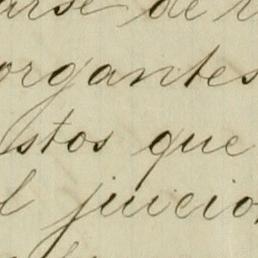 arse de
organtes
stos que
l juicio,